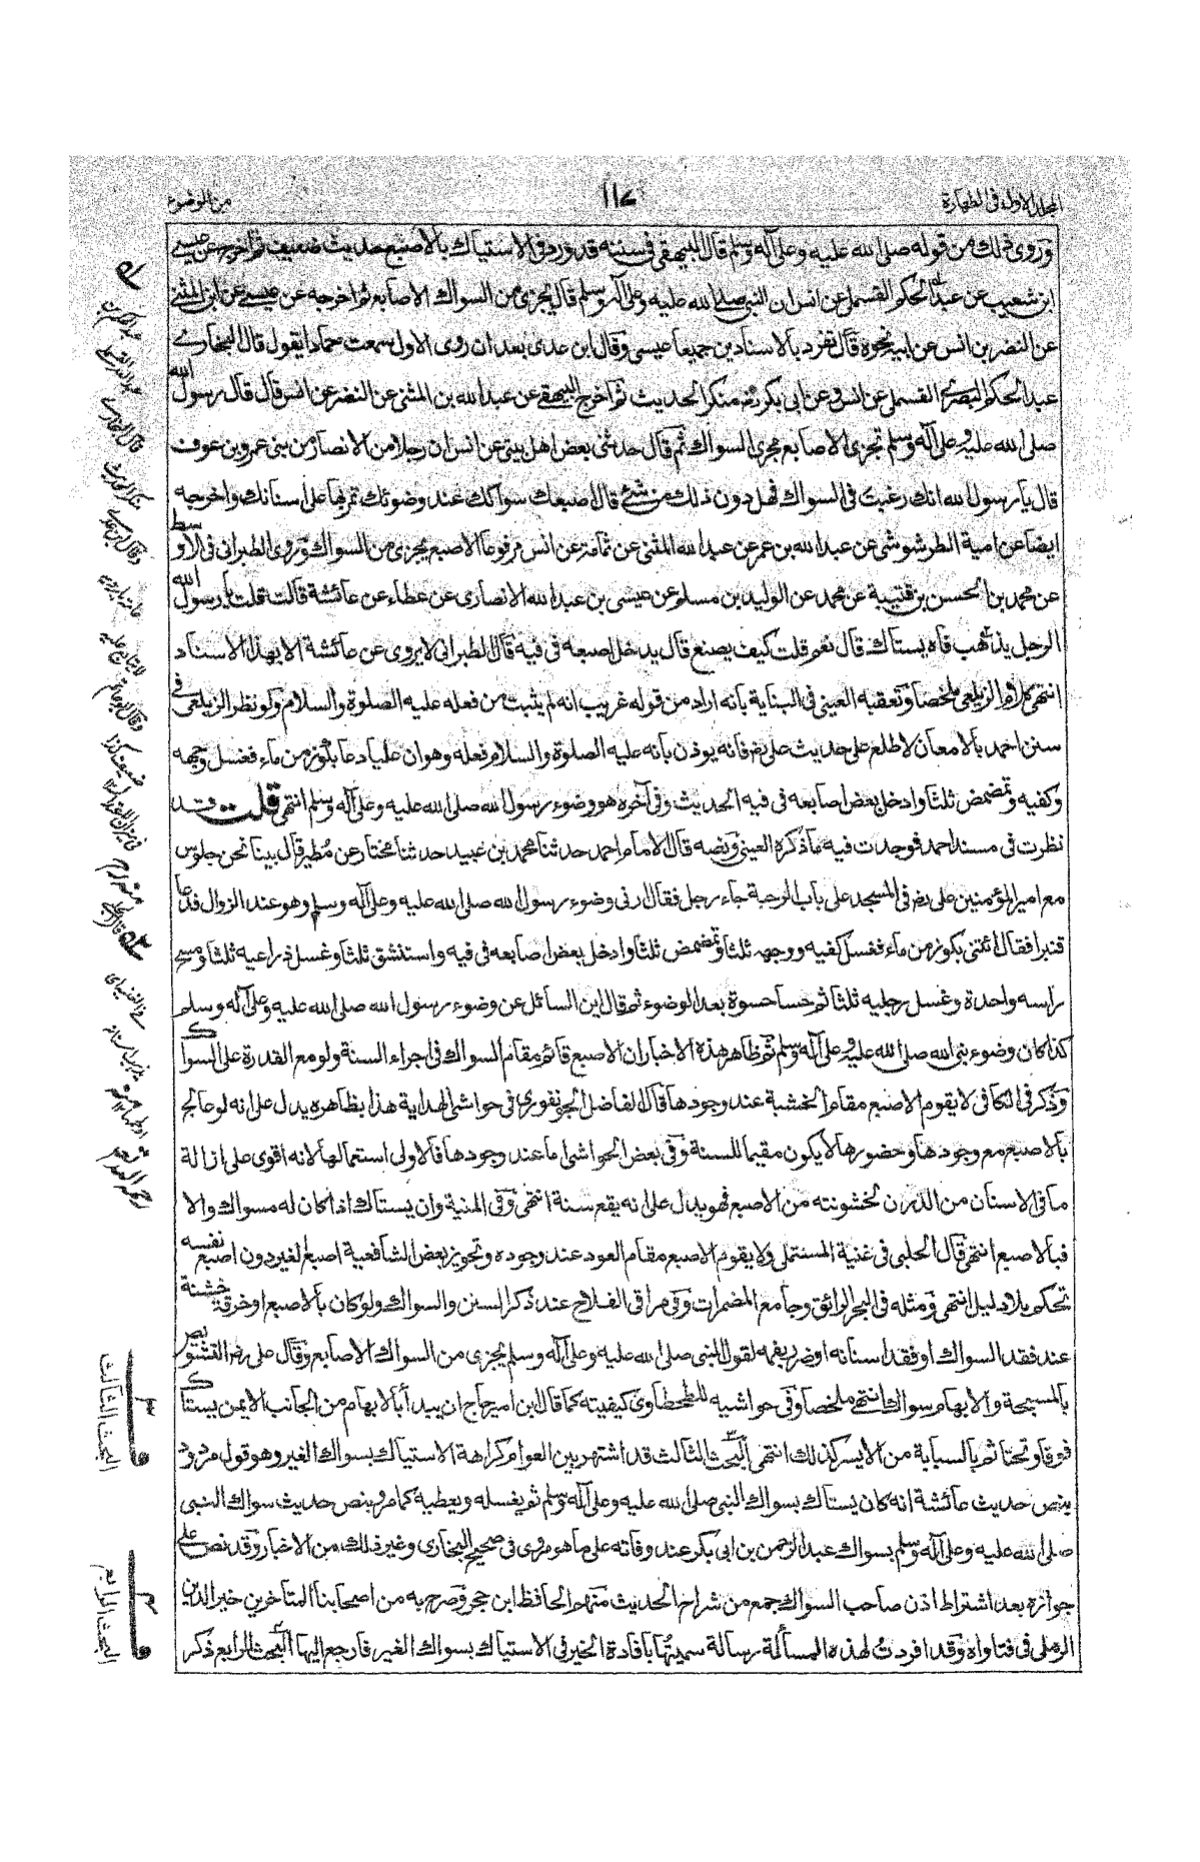 المجلد الاول فى الطهارة
١١٧
من الوضوء
وروى ذلك من قوله صلى الله عليه وعلى آله وسلم قال البيهقى فى سننه قد ورد فى الاستياك بالاصبع حديث ضعيف ثم اخرجه عن عيسى
ابن شعيب عن عبد الحكم القسملى عن انس ان النبى صلى الله عليه وعلى آله وسلم قال يجزى من السواك الاصابع ثم اخرجه عن عيسى عن ابن المثنى
عن النضر بن انس عن ابيه نحوه قال تفرد بالاسنادين جميعا عيسى وقال ابن عدى بعد ان روى الاول سمعت حمادا يقول قال البخارى
عبد الحكم البصرى القسملى عن انس وعن ابى بكر رض منكر الحديث ثم اخرج البيهقى عن عبد الله بن المثنى عن النضر عن انس قال قال رسول الله
صلى الله عليه وعلى آله وسلم تجزى الاصابع مجرى السواك ثم قال حدثنى بعض اهل بيتى عن انس ان رجلا من الانصار من بنى عمرو بن عوف
قال يا رسول الله انك رغبت فى السواك فهل دون ذلك من شئ قال اصبعك سواك عند وضوئك تمر بها على اسنانك واخرجه
ايضا عن امية الطرشوشى عن عبد الله بن عمر عن عبد الله المثنى عن ثمامة عن انس مرفوعا الاصبع يجزى من السواك وروى الطبرانى فى الاوسط
عن محمد بن الحسن بن قتيبة عن محمد عن الوليد بن مسلم عن عيسى بن عبد الله الانصارى عن عطاء عن عائشة قالت قلت يا رسول الله
الرجل يذهب فاه يستاك قال نعم قلت كيف يصنع قال يدخل اصبعه فى فيه قال الطبرانى لا يروى عن عائشة الا بهذا الاسناد
انتهى كلام الزيلعى ملخصا وتعقبه العينى فى البناية بانه اراد من قوله غريب انه لم يثبت من فعله عليه الصلوة والسلام ولو نظر الزيلعى فى
سنن احمد بالامعان لاطلع على حديث على رض فانه يوذن بانه عليه الصلوة والسلام فعله وهو ان عليا دعا بكوز من ماء فغسل وجهه
وكفيه وتمضمض ثلثا وادخل بعض اصابعه فى فيه الحديث وفى آخره هو وضوء رسول الله صلى الله عليه وعلى آله وسلم انتهى قلت وقد
نظرت فى مسند احمد فوجدت فيه ما ذكره العينى ونصه قال الامام احمد حدثنا محمد بن عبيد حدثنا مختار عن مطير قال بينا نحن جلوس
مع امير المؤمنين على رض فى المسجد على باب الرحبة جاء رجل فقال ارنى وضوء رسول الله صلى الله عليه وعلى آله وسلم وهو عند الزوال فدعا
قنبرا فقال ائتنى بكوز من ماء فغسل كفيه ووجهه ثلثا وتمضمض ثلثا وادخل بعض اصابعه فى فيه واستنشق ثلثا وغسل ذراعيه ثلثا ومسح
راسه واحدة وغسل رجليه ثلثا ثم حسا حسوة بعد الوضوء ثم قال اين السائل عن وضوء رسول الله صلى الله عليه وعلى آله وسلم
كذا كان وضوء نبى الله صلى الله عليه وعلى آله وسلم ثم ظاهر هذه الاخبار ان الاصبع قائم مقام السواك فى اجراء السنة ولو مع القدرة على السواك
وذكر فى الكافى لا يقوم الاصبع مقام الخشبة عند وجودها قال الفاضل الجونفورى فى حواشى الهداية هذا بظاهره يدل على انه لو عالج
بالاصبع مع وجودها وحضورها لا يكون مقيما للسنة وفى بعض الحواشى اما عند وجودها فالاولى استعمالها لانه اقوى على ازالة
ما فى الاسنان من الدرن لخشونته من الاصبع فهو يدل على انه يقع سنة انتهى وفى المنية وان يستاك اذا كان له مسواك والا
فبالاصبع انتهى قال الحلبى فى غنية المستملى ولا يقوم الاصبع مقام العود عند وجوده وتجويز بعض الشافعية اصبع الغير دون اصبع نفسه
تحكم بلا دليل انتهى ومثله فى البحر الرائق وجامع المضمرات وفى مراقى الفلاح عند ذكر السنن والسواك ولو كان بالاصبع او خرقة خشنة
عند فقد السواك او فقد اسنانه او ضرر بفمه لقول النبى صلى الله عليه وعلى آله وسلم يجزى من السواك الاصابع وقال على رض التشويص
بالمسبحة والابهام سواك انتهى ملخصا وفى حواشيه للطحطاوى كيفيته كما قال ابن امير حاج ان يبدأ بالابهام من الجانب الايمن يستاك
فوقا وتحتا ثم بالسبابة من الايسر كذلك انتهى البحث الثالث قد اشتهر بين العوام كراهة الاستياك بسواك الغير وهو قول مردود
بنص حديث عائشة انه كان يستاك بسواك النبى صلى الله عليه وعلى آله وسلم ثم يغسله ويعطيه كما مر وبنص حديث سواك النبى
صلى الله عليه وعلى آله وسلم بسواك عبد الرحمن بن ابى بكر عند وفاته على ما هو مروى فى صحيح البخارى وغير ذلك من الاخبار وقد نص على
جوازه بعد اشتراط اذن صاحب السواك جمع من شراح الحديث منهم الحافظ ابن حجر وصرح به من اصحابنا المتاخرين خير الدين
الرملى فى فتاواه وقد افردت لهذه المسألة رسالة سميتها بافادة الخير فى الاستياك بسواك الغير فارجع اليها البحث الرابع ذكر
ف ٣
البحث الثالث
ف ٤
البحث الرابع